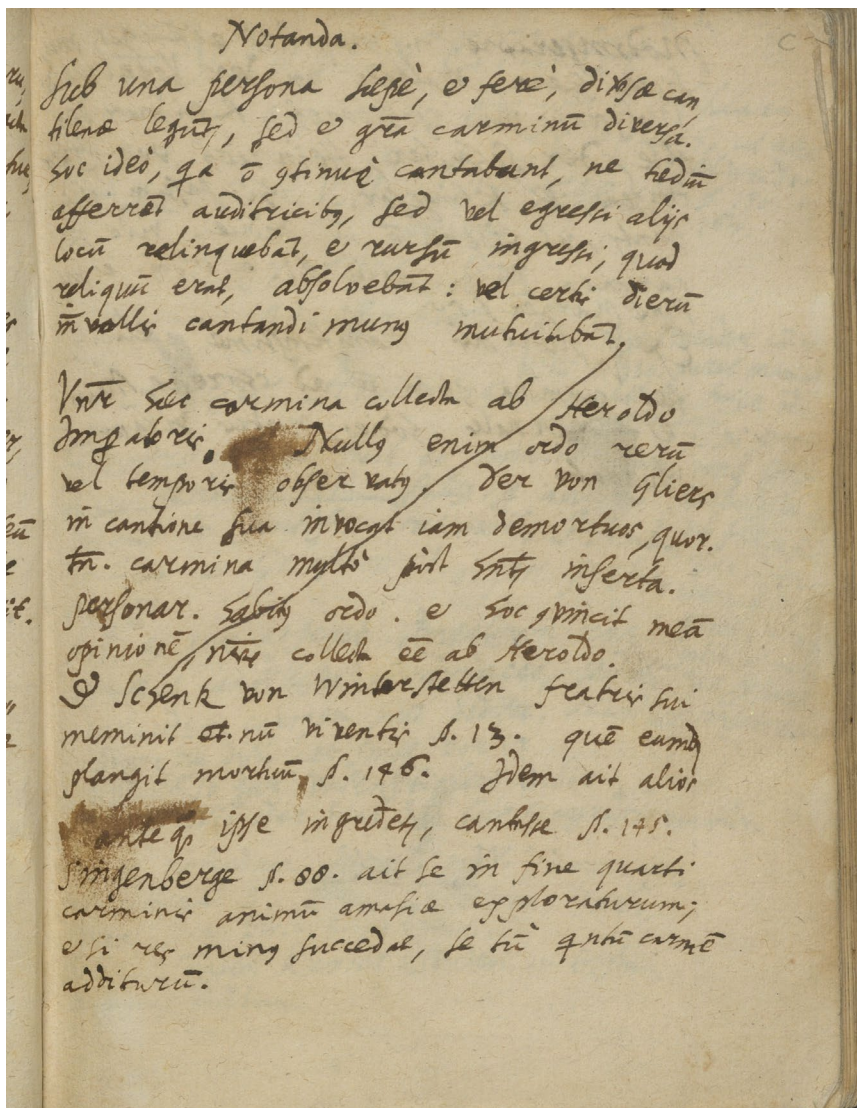 Notanda.
Sub una persona sæpè, & ferè, diversæ can
tilenæ legunt̃, sed & gr̃a carminũ diversa.
hoc ideò, qa õ ꝯtinuè cantabant, ne tædiũ
afferrẽt auditricibꝰ, sed vel egressi alijs
locũ relinquebãt, & rursũ ingressi, quod
reliquũ erat, absolvebãt: vel certis dierũ
ĩvallis cantandi munꝰ
hæc carmina collecta ab Heroldo
Imꝑatoris. Nullꝰ enim ordo rerũ
vel temporis observatꝰ. Der von Gliers
in cantione sua invocat iam demortuos, quor.
tñ. carmina multò pòst inserta.
personar. habitꝰ ordo. & hoc ꝯvincit meã
opinionẽ, collecta eẽ ab Heroldo.
Schenk von Winterstetten fratris sui
meminit et. nũ viventis p. 13. quẽ eumd
plangit mortuũ p. 146. Idem ait alios
anteq̃ ipse ingredet̃, cantasse p. 145.
Singenberge p. 88. ait se in fine quarti
carminis animũ amasiæ exploraturum;
& si res minꝰ succedat, se tũ qntũ carmẽ
additurũ.